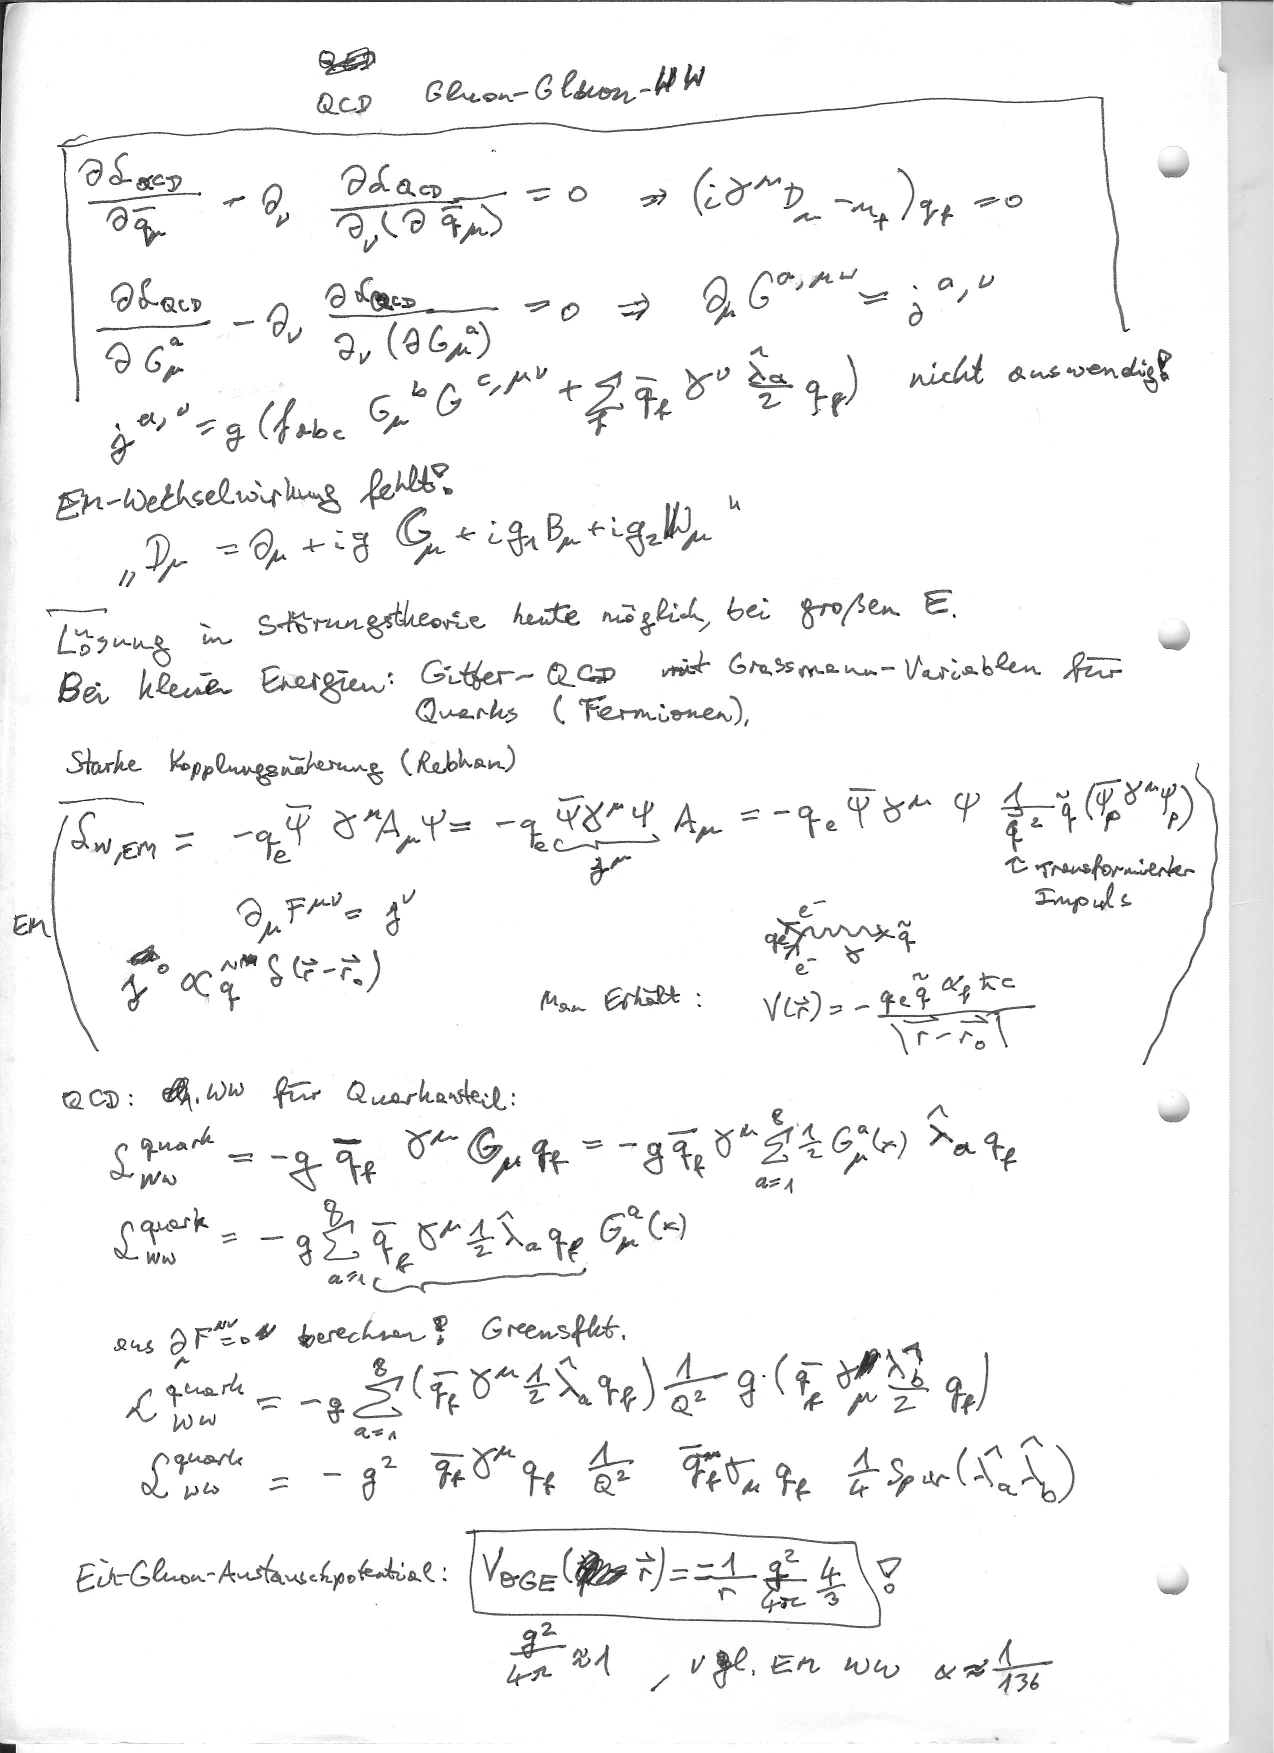 QCD Gluon-Gluon-WW
∂ℒ_QCD/∂q̄_μ - ∂_ν ∂ℒ_QCD/∂_ν(∂q̄_μ) = 0 ⇒ (iγ^μ D_μ - m_f) q_f = 0
∂ℒ_QCD/∂G_μ^a - ∂_ν ∂ℒ_QCD/∂_ν(∂G_μ^a) = 0 ⇒ ∂_μ G^{a,μν} = j^{a,ν}
j^{a,ν} = g (f_abc G_μ^b G^{c,μν} + Σ_f q̄_f γ^ν λ̂_a/2 q_f) nicht auswendig!
EM-Wechselwirkung fehlt!
„D_μ = ∂_μ + ig G_μ + i g_1 B_μ + i g_2 W_μ"
Lösung in Störungstheorie heute möglich, bei großen E.
Bei kleinen Energien: Gitter-QCD mit Grassmann-Variablen für
Quarks (Fermionen),
Starke Kopplungsnäherung (Rebhan)
ℒ_{W,EM} = -q_e ψ̄ γ^μ A_μ ψ = -q_e ψ̄ γ^μ ψ A_μ = -q_e ψ̄ γ^μ ψ 1/q² q̃ (ψ̄_p γ^μ ψ_p)
j^μ
↑ transformierter
Impuls
EM
∂_μ F^{μν} = j^ν
e⁻
q_e γ q̃
e⁻
j^0 ∝ q̃ δ(r⃗ - r⃗_0)
Man Erhält: V(r⃗) = - q_e q̃ α_f ħc / |r⃗ - r⃗_0|
QCD: WW für Quarkanteil:
ℒ_WW^quark = -g q̄_f γ^μ G_μ q_f = -g q̄_f γ^μ Σ_{a=1}^8 1/2 G_μ^a(x) λ̂_a q_f
ℒ_WW^quark = -g Σ_{a=1}^8 q̄_f γ^μ 1/2 λ̂_a q_f G_μ^a(x)
aus ∂_μ F^{μν} = 0 berechnen! Greensfkt.
ℒ_WW^quark = -g Σ_{a=1}^8 (q̄_f γ^μ 1/2 λ̂_a q_f) 1/Q² g·(q̄_f γ_μ λ̂_b/2 q_f)
ℒ_WW^quark = -g² q̄_f γ^μ q_f 1/Q² q̄_f γ_μ q_f 1/4 Spur(λ̂_a λ̂_b)
Ein-Gluon-Austauschpotential: V_OGE(r⃗) = -1/r g²/4π 4/3 !
g²/4π ≈ 1 , vgl. EM WW α ≈ 1/136